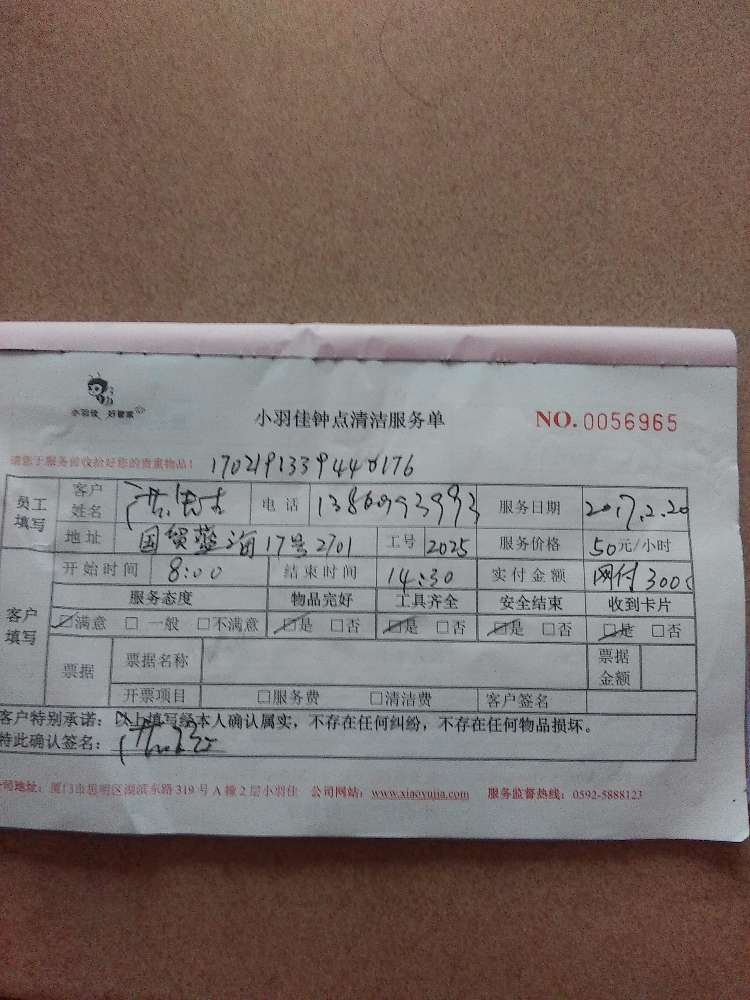 小羽佳 好管家
小羽佳钟点清洁服务单
NO. 0056965
请您于服务前收拾好您的贵重物品！
员工填写 客户姓名 电话 服务日期 2017.2.20
地址 国贸蓝海17号2701 工号 2025 服务价格 50元/小时
客户填写 开始时间 8:00 结束时间 14:30 实付金额 网付300
服务态度 物品完好 工具齐全 安全结束 收到卡片
□满意 □一般 □不满意 □是 □否 □是 □否 □是 □否 □是 □否
票据 票据名称 票据金额
开票项目 □服务费 □清洁费 客户签名
客户特别承诺：以上填写经本人确认属实，不存在任何纠纷，不存在任何物品损坏。
特此确认签名：
公司地址：厦门市思明区湖滨东路319号A幢2层小羽佳 公司网站：www.xiaoyujia.com 服务监督热线：0592-5888123